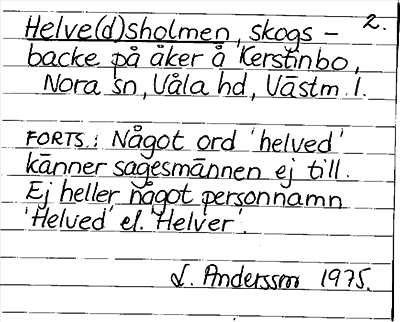 2.
Helve(d)sholmen, skogs-
backe på åker å Kerstinbo,
Nora sn, Våla hd, Västm. l.
FORTS.: Något ord 'helved'
känner sagesmännen ej till.
Ej heller något personnamn
'Helved' el. 'Helver'.
L. Andersson 1975.